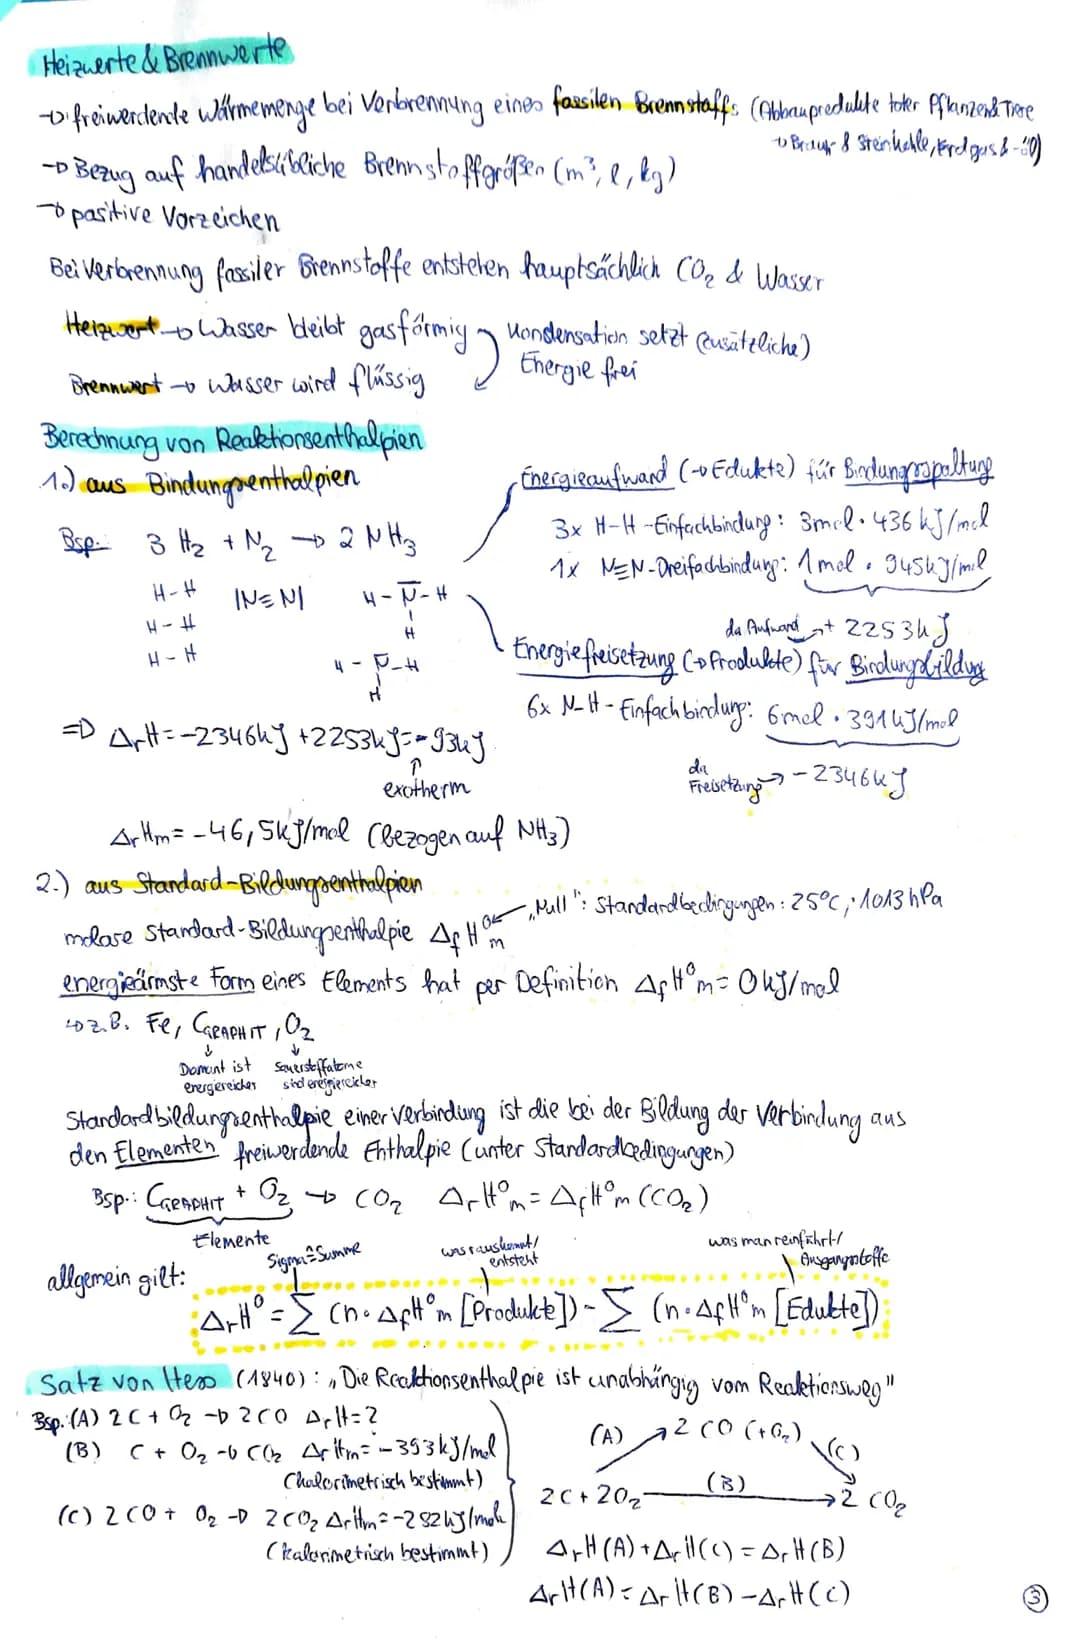 Heizwerte & Brennwerte
→ freiwerdende Wärmemenge bei Verbrennung eines fossilen Brennstoffs (Abbauprodukte toter Pflanzen & Tiere
→ Braun- & Steinkohle, Erdgas & -öl)
→ Bezug auf handelsübliche Brennstoffgrößen (m³, l, kg)
→ positive Vorzeichen
Bei Verbrennung fossiler Brennstoffe entstehen hauptsächlich CO₂ & Wasser
Heizwert → Wasser bleibt gasförmig
Kondensation setzt (zusätzliche) Energie frei
Brennwert → Wasser wird flüssig
Berechnung von Reaktionsenthalpien
1.) aus Bindungsenthalpien
Energieaufwand (→ Edukte) für Bindungsspaltung
3x H-H-Einfachbindung: 3mol · 436 kJ/mol
1x N≡N-Dreifachbindung: 1mol · 945kJ/mol
da Aufwand → + 2253kJ
Bsp.: 3 H₂ + N₂ → 2 NH₃
H-H |N≡N| H-N̅-H
H-H H
H-H H-N̅-H
H
Energiefreisetzung (→ Produkte) für Bindungsbildung
6x N-H-Einfachbindung: 6mol · 391kJ/mol
da Freisetzung → -2346kJ
=> ΔrH = -2346kJ + 2253kJ = -93kJ
↑
exotherm
ΔrHm = -46,5kJ/mol (bezogen auf NH₃)
2.) aus Standard-Bildungsenthalpien
molare Standard-Bildungsenthalpie ΔfH⁰m ← "Null": Standardbedingungen: 25°C; 1013hPa
energieärmste Form eines Elements hat per Definition ΔfH⁰m = 0kJ/mol
↳ z.B. Fe, CGRAPHIT, O₂
Diamant ist energiereicher
Sauerstoffatome sind energiereicher
Standardbildungsenthalpie einer Verbindung ist die bei der Bildung der Verbindung aus
den Elementen freiwerdende Enthalpie (unter Standardbedingungen)
Bsp.: CGRAPHIT + O₂ → CO₂ ΔrH⁰m = ΔfH⁰m (CO₂)
Elemente
Sigma ≙ Summe
was rauskommt/entsteht
was man reinführt/Ausgangsstoffe
allgemein gilt:
ΔrH⁰ = ∑ (n · ΔfH⁰m [Produkte]) - ∑ (n · ΔfH⁰m [Edukte])
Satz von Hess (1840): "Die Reaktionsenthalpie ist unabhängig vom Reaktionsweg"
Bsp.: (A) 2C + O₂ → 2CO ΔrH = ?
(B) C + O₂ → CO₂ ΔrHm = -393kJ/mol
(kalorimetrisch bestimmt)
(C) 2CO + O₂ → 2CO₂ ΔrHm = -282kJ/mol
(kalorimetrisch bestimmt)
(A) 2 CO (+O₂) (C)
2C + 2O₂ (B) → 2 CO₂
ΔrH(A) + ΔrH(C) = ΔrH(B)
ΔrH(A) = ΔrH(B) - ΔrH(C)
3